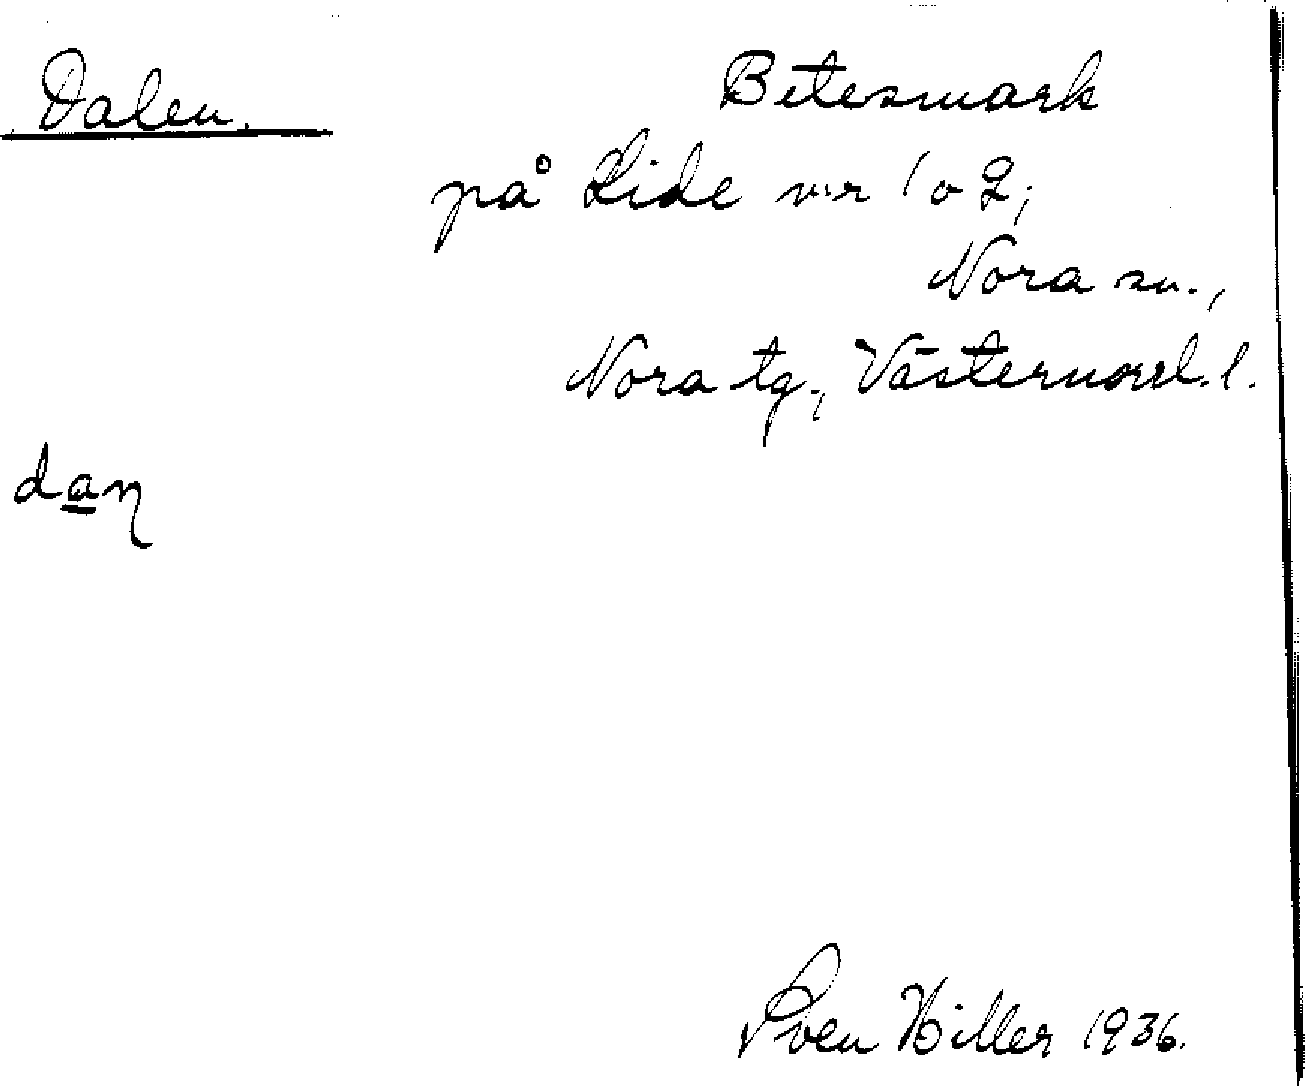 Dalen.
Betesmark
på Lide n:r 1 o 2,
Nora sn.,
Nora tg., Västernorrl. l.
daɳ
Sven Hiller 1936.